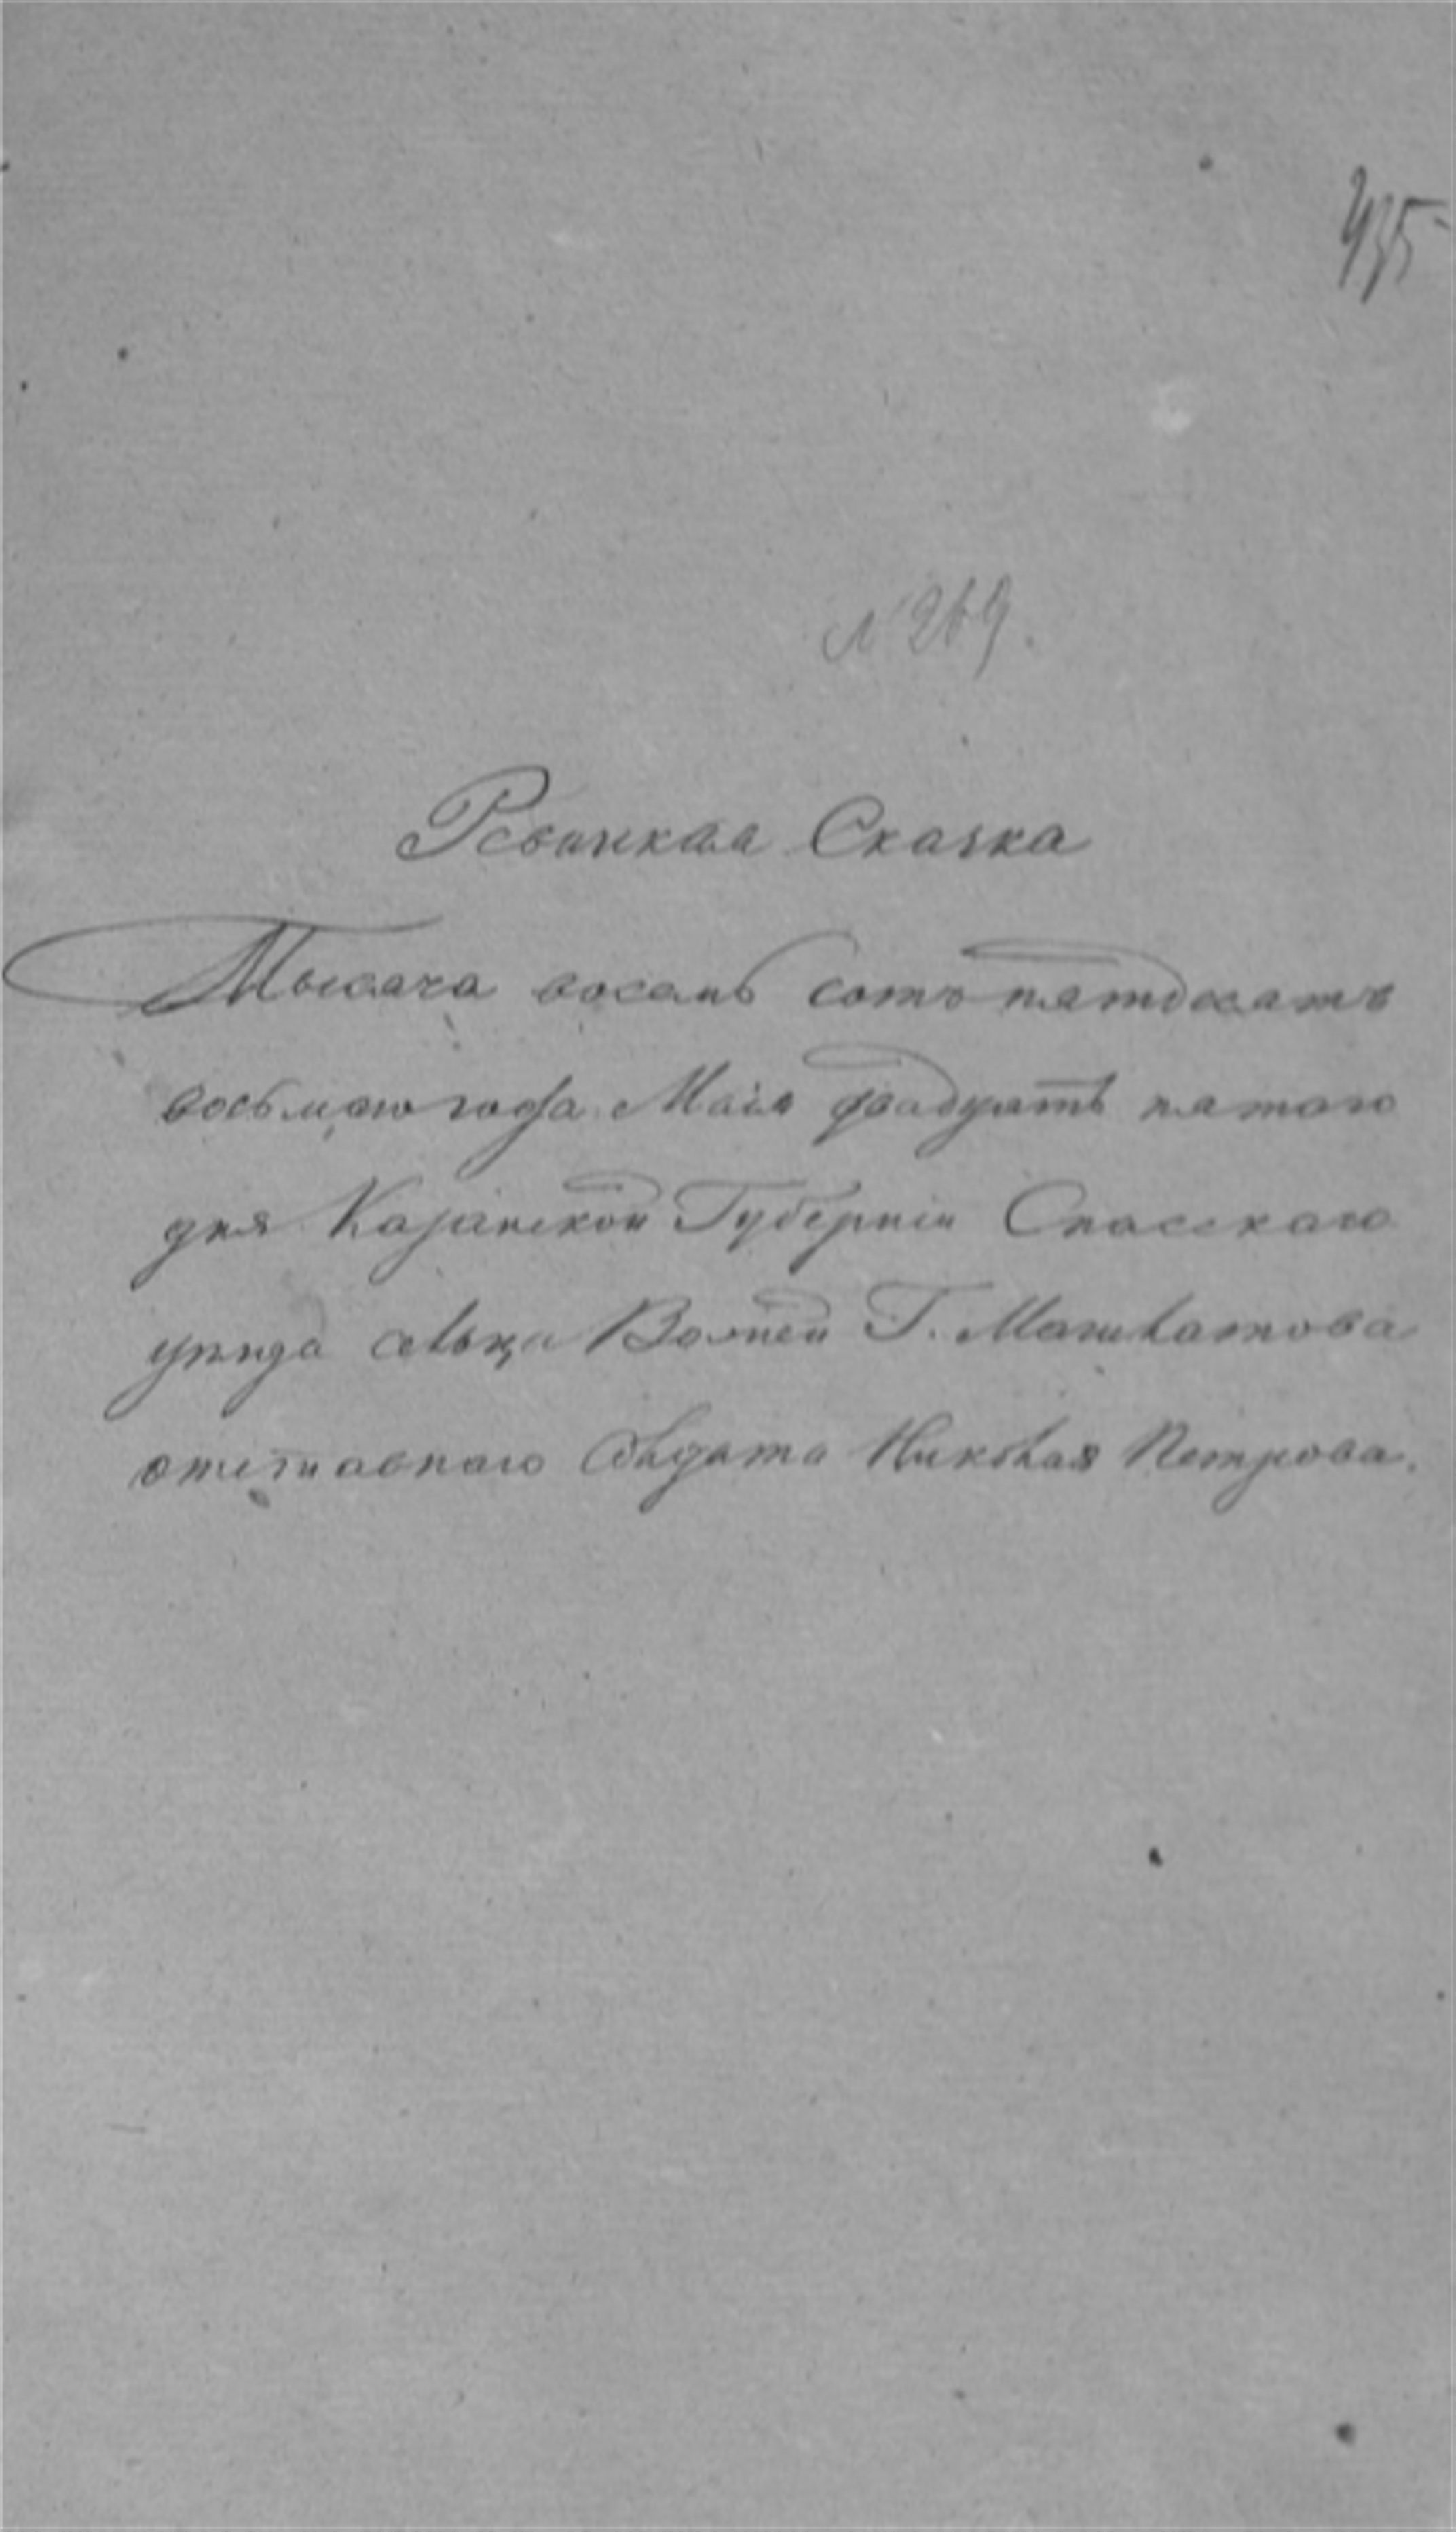 № 269.
Ревизкая Сказка
Тысяча восемь сотъ пятдесятъ
восьмаго года Маія двадцать пятаго
дня Казанской Губерніи Спасскаго
уѣзда сельца Г. Мошкатова
отставнаго Солдата Николая Петрова.